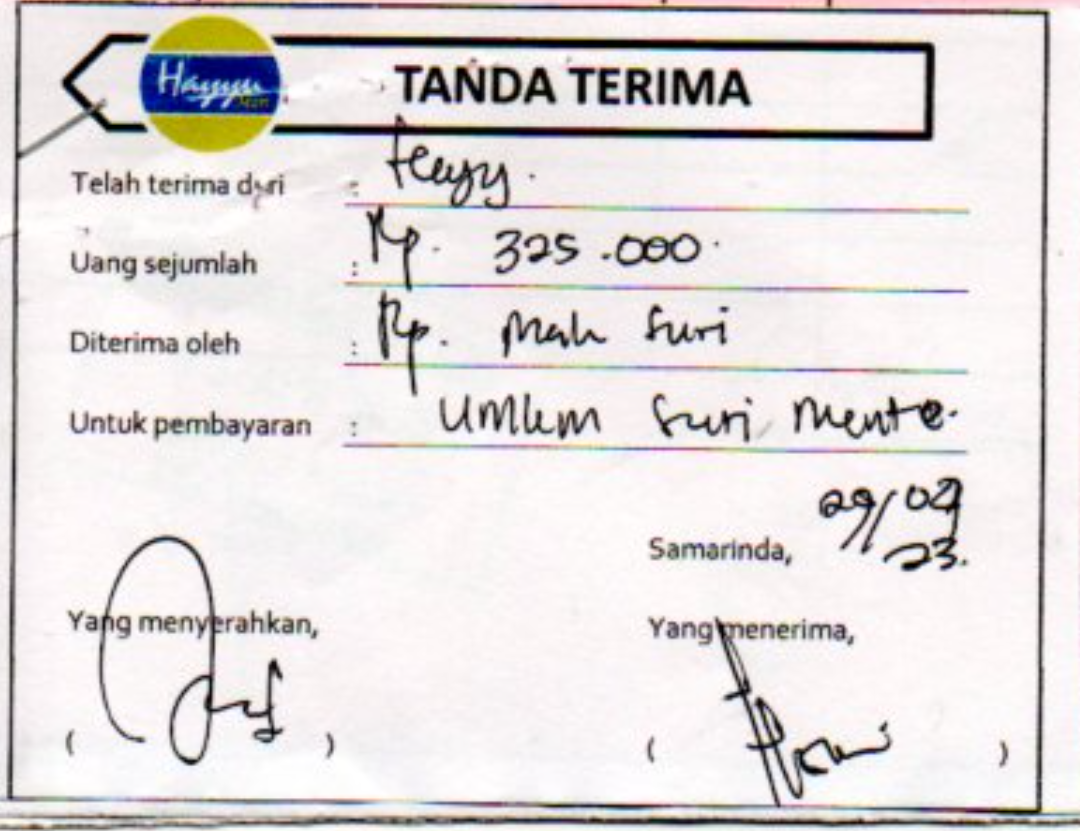 Hayyu
TANDA TERIMA
Telah terima dari : Hayy.
Uang sejumlah : Rp. 325.000.
Diterima oleh : Rp. Mah Suri
Untuk pembayaran : UMKM Suri Mente.
29/
Samarinda, 23.
Yang menyerahkan, Yang menerima,
( ) ( )